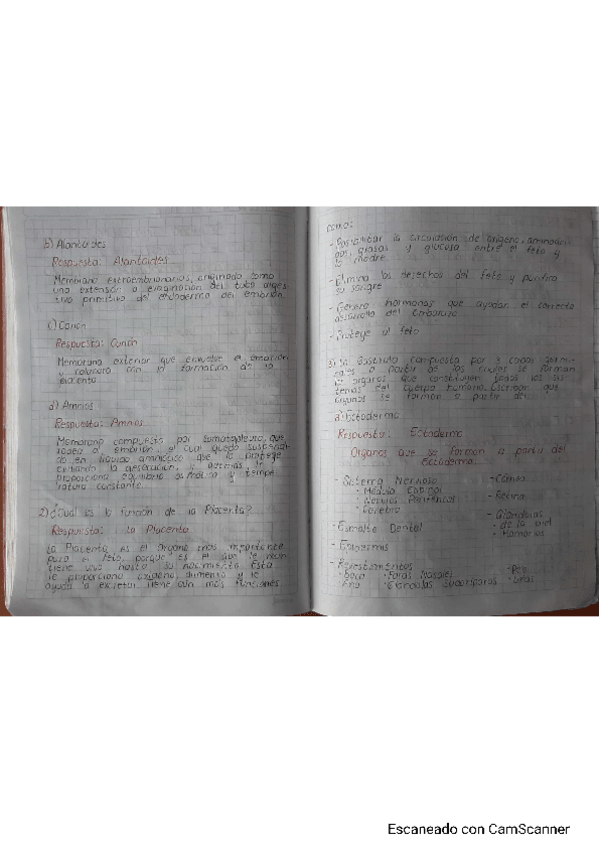 b) Alantoides
Respuesta: Alantoides
Membrana extraembrionarias, originada como
una extensión o emaginación del tubo diges
tivo primitivo del endodermo del embrión.
c) Corión
Respuesta: Corión
Membrana exterior que envuelve el embrión
y colabora con la formación de la
placenta
d) Amnios
Respuesta: Amnios
Membrana compuesta por que
rodea al embrión el cual queda suspendi-
do en líquido amniótico que lo protege
durante la gestación, y además le
proporciona equilibrio y tempe
ratura constante.
2) ¿Cual es la función de la Placenta?
Respuesta: La Placenta
La Placenta es el órgano mas importante
para el feto, porque es el que le man
tiene vivo hasta su nacimiento. Esta
le proporciona oxígeno, alimento y le
ayuda a excretar, tiene aún más funciones
como:
- Posibilitar la circulación de oxígeno, aminoáci
dos, grasas y glucosa entre el feto y
la madre
- Elimina los desechos del feto y purifica
su sangre
- Genera hormonas que ayudan el correcto
desarrollo del embarazo
- Protege al feto
3) La gástrula compuesta por 3 capas germi-
nales a partir de las cuales se forman
los órganos que constituyen todos los sis
temas del cuerpo humano. Escriban que
órganos se forman a partir de:
a) Ectodermo
Respuesta: Ectodermo
Organos que se forman a partir del
Ectodermo.
- Sistema Nervioso
· Médula Espinal
· Nervios Periféricos
· Cerebro
- Esmalte Dental
- Epidermis
- Revestimientos
· Boca · Fosas Nasales
· Ano · Glándulas Sudoríparas
- Retina
- Glándulas
· de la piel
· Mamarias
· Pelo
· Uñas
Escaneado con CamScanner